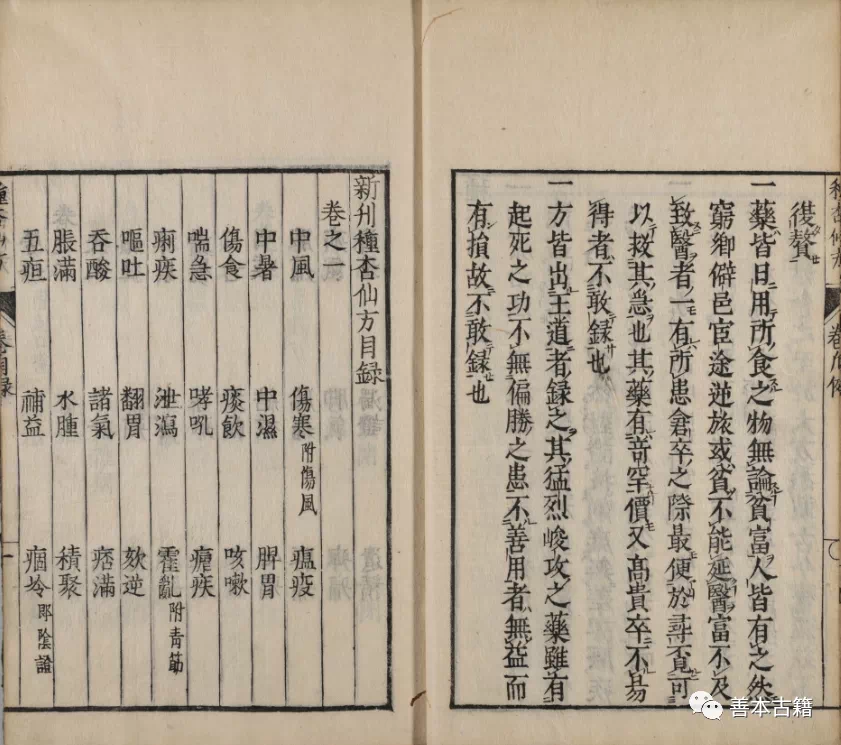 復贅
一藥皆日用所食之物無論貧富人皆有之然
窮鄉僻邑宦途逆旅或貧不能延醫富不及
致醫者一有所患倉卒之際最便於尋覓可
以救其急也其藥有竒罕價又高貴卒不易
得者不敢録也
一方皆出王道者録之其猛烈峻攻之藥雖有
起死之功不無偏勝之患不善用者無益而
有損故不敢録也
新刋種杏仙方目録
卷之一
中風 傷寒附傷風 瘟疫
中暑 中濕 脾胃
傷食 痰飲 咳嗽
喘急 哮吼 瘧疾
痢疾 泄瀉 霍亂附青筋
嘔吐 翻胃 欬逆
吞酸 諸氣 痞滿
脹滿 水腫 積聚
五疸 補益 痼冷即陰證
善本古籍